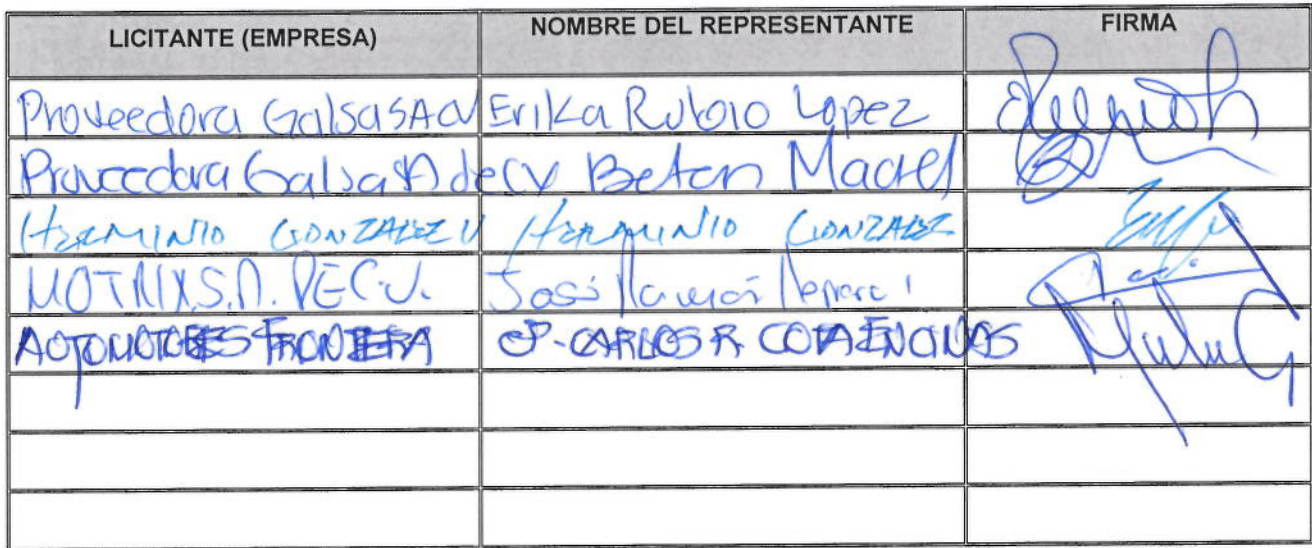 LICITANTE (EMPRESA) NOMBRE DEL REPRESENTANTE FIRMA
Proveedora Galsa SA CV Erika Rubio Lopez
Proveedora Galsa SA de CV Maciel
HERMINIO GONZALEZ V HERMINIO GONZALEZ
MOTRIX S.A. DE C.V. José Ramón
AUTOMOTORES FRONTERA CARLOS R. COTA ENCINAS